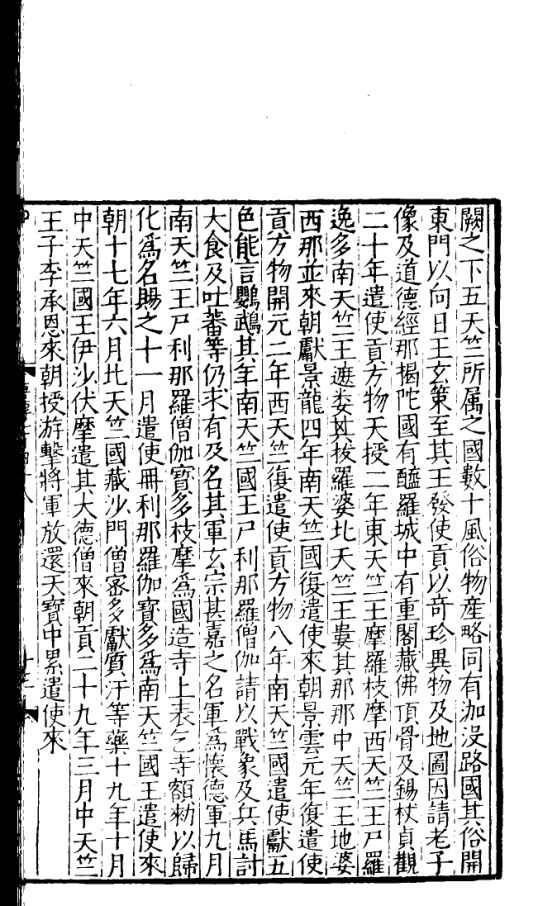 闕之下五天竺所属之國數十風俗物産略同有伽沒路國其俗開
東門以向日王玄策至其王發使貢以奇珍異物及地圖因請老子
像及道德經那揭陀國有醯羅城中有重閣藏佛頂骨及錫杖貞觀
二十年遣使貢方物天授二年東天竺王摩羅枝摩西天竺王尸羅
逸多南天竺王遮婁其拔羅婆北天竺王婁其那那中天竺王地婆
西那並來朝獻景龍四年南天竺國復遣使來朝景雲元年復遣使
貢方物開元二年西天竺復遣使貢方物八年南天竺國遣使獻五
色能言鸚鵡其年南天竺國王尸利那羅僧伽請以戰象及兵馬討
大食及吐蕃等仍求有及名其軍玄宗甚嘉之名軍爲懷德軍九月
南天竺王尸利那羅僧伽寶多枝摩爲國造寺上表乞寺額勑以歸
化爲名賜之十一月遣使冊利那羅伽寶多爲南天竺國王遣使來
朝十七年六月北天竺國藏沙門僧密多獻質汗等藥十九年十月
中天竺國王伊沙伏摩遣其大德僧來朝貢二十九年三月中天竺
王子李承恩來朝授游擊將軍放還天寶中累遣使來